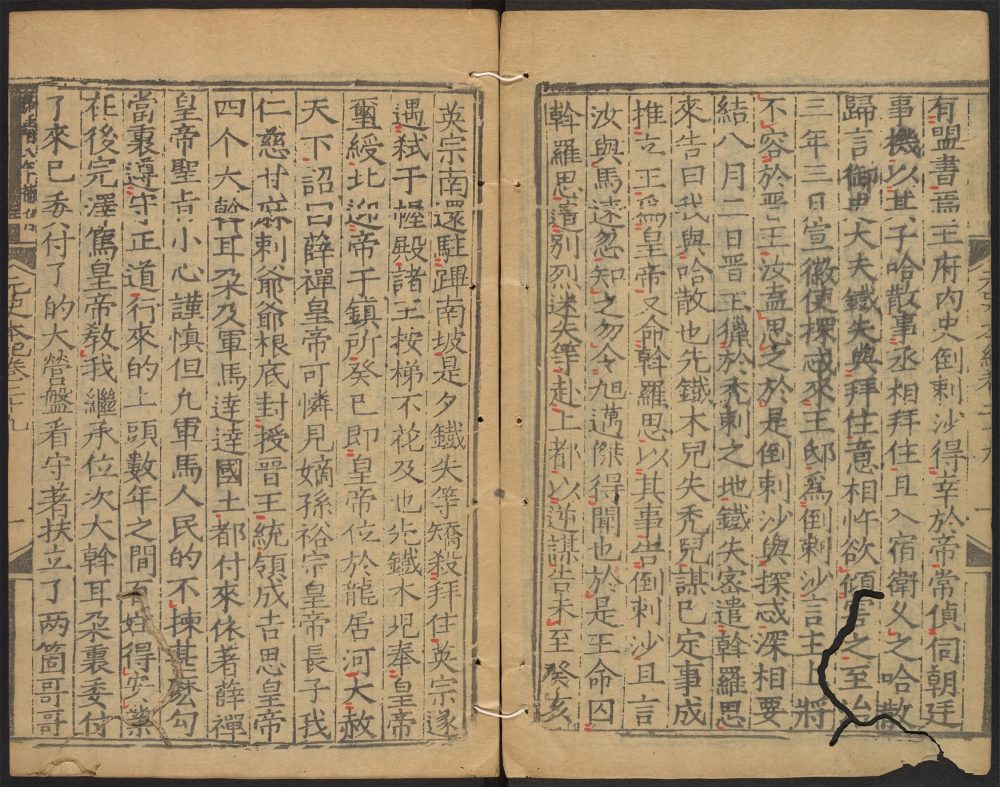 有盟書焉王府內史倒剌沙得幸於帝常偵伺朝廷
事機以其子哈散事丞相拜住且入宿衛久之哈散
歸言御史大夫鐵失與拜住意相忤欲傾害之至治
三年三日宣徽使探忒來王邸爲倒剌沙言主上將
不容於晋王汝盍思之於是倒剌沙與探忒深相要
結八月二日晋王獵於禿剌之地鐵失宻遣斡羅思
來告曰我與哈散也先鐵木兒失禿兒謀已定事成
推立王爲皇帝又命斡羅思以其事告倒剌沙且言
汝與馬速忽知之勿令旭邁傑得聞也於是王命囚
斡羅思遣别烈迷失等赴上都以逆謀告未至癸亥
英宗南還駐蹕南坡是夕鐵失等矯殺拜住英宗遂
遇弒于幄殿諸王按梯不花及也先鐵木兒奉皇帝
璽綬北迎帝于鎮所癸巳即皇帝位於龍居河大赦
天下詔曰薛禪皇帝可憐見嫡孫裕宗皇帝長子我
仁慈甘麻剌爺爺根底封授晉王統領成吉思皇帝
四个大斡耳朶及軍馬達達國土都付來依著薛禪
皇帝聖旨小心謹慎但凡軍馬人民的不揀甚麽勾
當裏遵守正道行來的上頭數年之間百姓得安業
在後完澤篤皇帝敎我繼承位次大斡耳朶裏委付
了來已委付了的大營盤看守著扶立了两箇哥哥